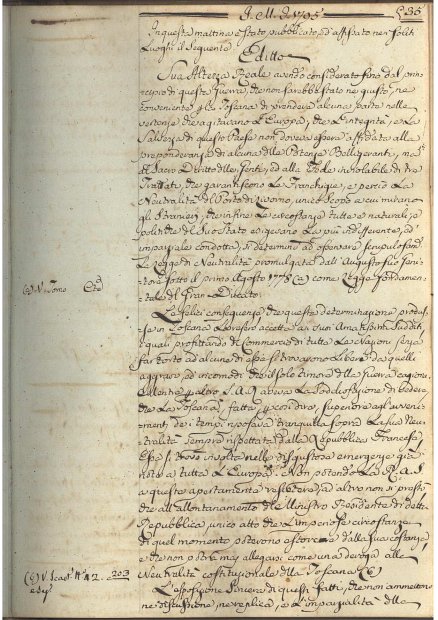 A. M. D. 1795
35
In questa mattina è stato pubblicato, ed affissato nei soliti
Luoghi il Seguente
Editto
Sua Altezza Reale avendo considerato fino dal prin-
cipio di questa Guerra, che non sarebbe stato nè giusto, nè
conveniente p la Toscana di prendere alcuna parte nelle
vertenze che agitavano l'Europa, che l'Integrità, e la
Salvezza di questo Paese non doveva essere affidata alla
preponderanza di alcuna delle Potenze Belligeranti, ma al
Sacro Diritto delle Genti, ed alla Fede inviolabile dei
Trattati, che garantiscono la Franchigia, e perciò la
Neutralità del Porto di Livorno, unico scopo a cui mirano
gli Stranieri, che infine le circostanze tutte e naturali, e
politiche del Suo Stato esigevano la più indifferente, ed
imparziale condotta, si determinò ad osservare scrupolosam
la Legge di Neutralità promulgata dall'Augusto suo Geni-
tore sotto il primo Agosto 1778 (a) come Legge fondamen-
tale del Gran-Ducato.
(a) V.
Le felici conseguenze, che questa determinazione produs-
se in Toscana la resero accetta ai suoi Amatissimi Sudditi,
i quali profittando di Commercio di tutte le Nazioni senza
far torto ad alcuna di esse si trovarono liberi da quelli
aggravi, ed incomodi che il solo timore della Guerra cagiona.
Mentre p altro S. A. R. aveva la Sodisfazione di vedere,
che la Toscana, fatta p così dire, superiore agli avveni-
menti dei tempi riposava tranquilla sopra la sua Neu-
tralità sempre rispettata dalla Repubblica Francese,
Essa si trovò involta nelle disgustose emergenze già
note a tutta l'Europa. Non potendo la R. A. S.
a questo apertamente resistere, ad altro non si prestò
che all'allontanamento del Ministro Residente di detta
Repubblica, unico atto che l'imperiose circostanze
di quel momento poterono estorcere dalla sua costanza
e che non potrà mai allegarsi come una deroga alla
Neutralità costituzionale della Toscana (b)
(b) V. 203
e seg.
L'esposizione sincera di questi fatti, che non ammettono
nè discussione, nè replica, e l'imparzialità della